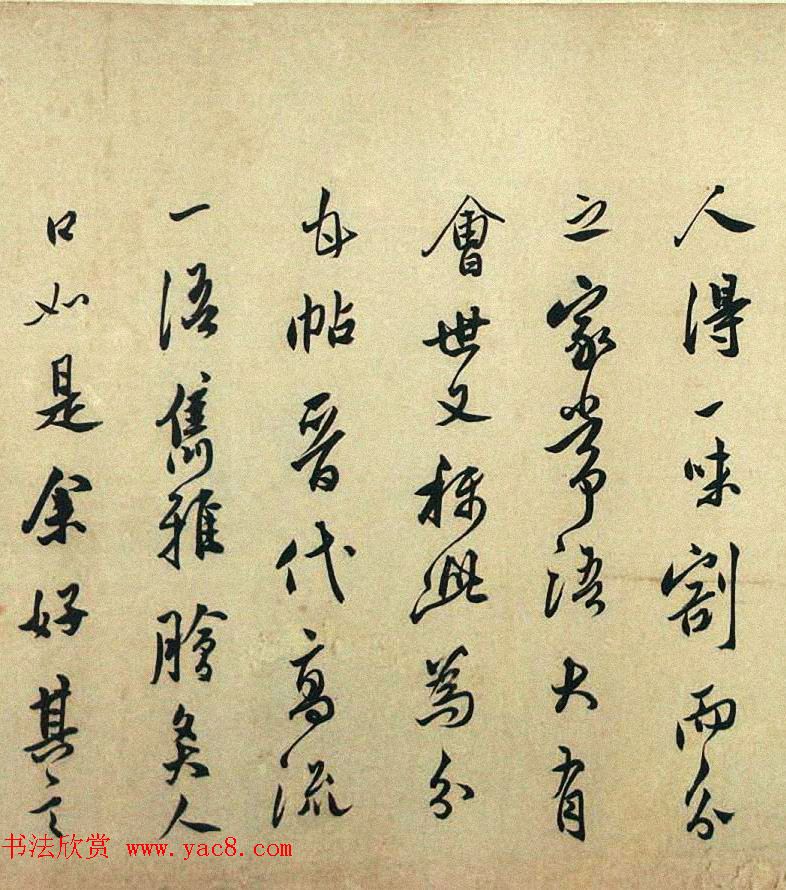 人得一味割而分
之家常語大有
會世又稱此為分
甘帖晉代高流
一語雋雅膾炙人
口如是余好其言
书法欣赏 www.yac8.com